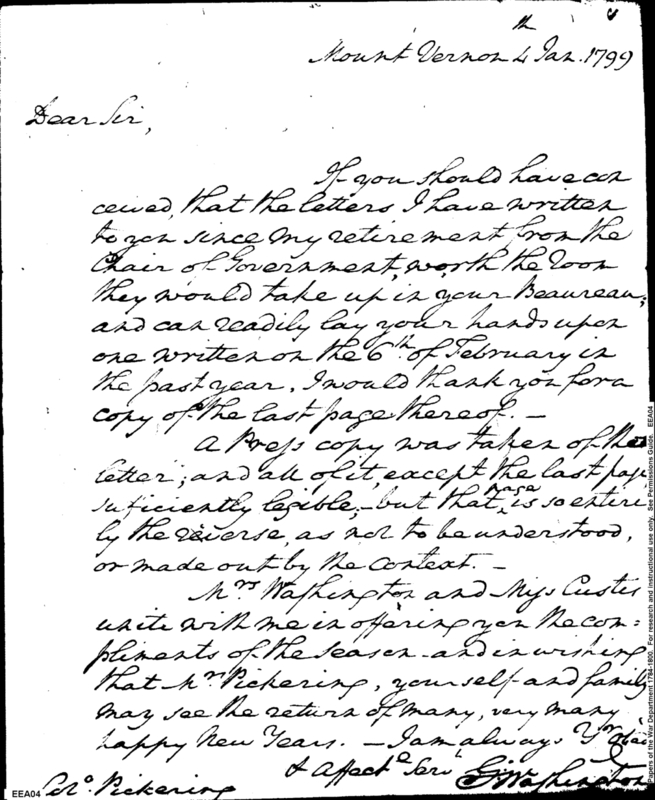 Mount Vernon 4th Jan. 1799
Dear Sir,
If you should have con
ceived, that the letters I have written
to you since my retirement from the
Chair of Government, worth the room
they would take up in your Beaureau;
and can readily lay your hands upon
one written on the 6th of February in
the past year, I would thank you for a
copy of the last page thereof. —
A Press copy was taken of the
letter; and all of it, except the last page
suficiently legible, – but that page is so entire
ly the reverse, as not to be understood,
or made out by the context. —
Mrs Washington and Miss Custis
unite with me in offering you the com=
pliments of the season – and in wishing
that Mrs Pickering, yourself and family
may see the return of many, very many
happy New Years. – I am always Yr Obedt
& Affecte Servt
Go Washington
Colo. Pickering
EEA04
Papers of the War Department 1784-1800. For research and instructional use only. See Permissions Guide. EEA04